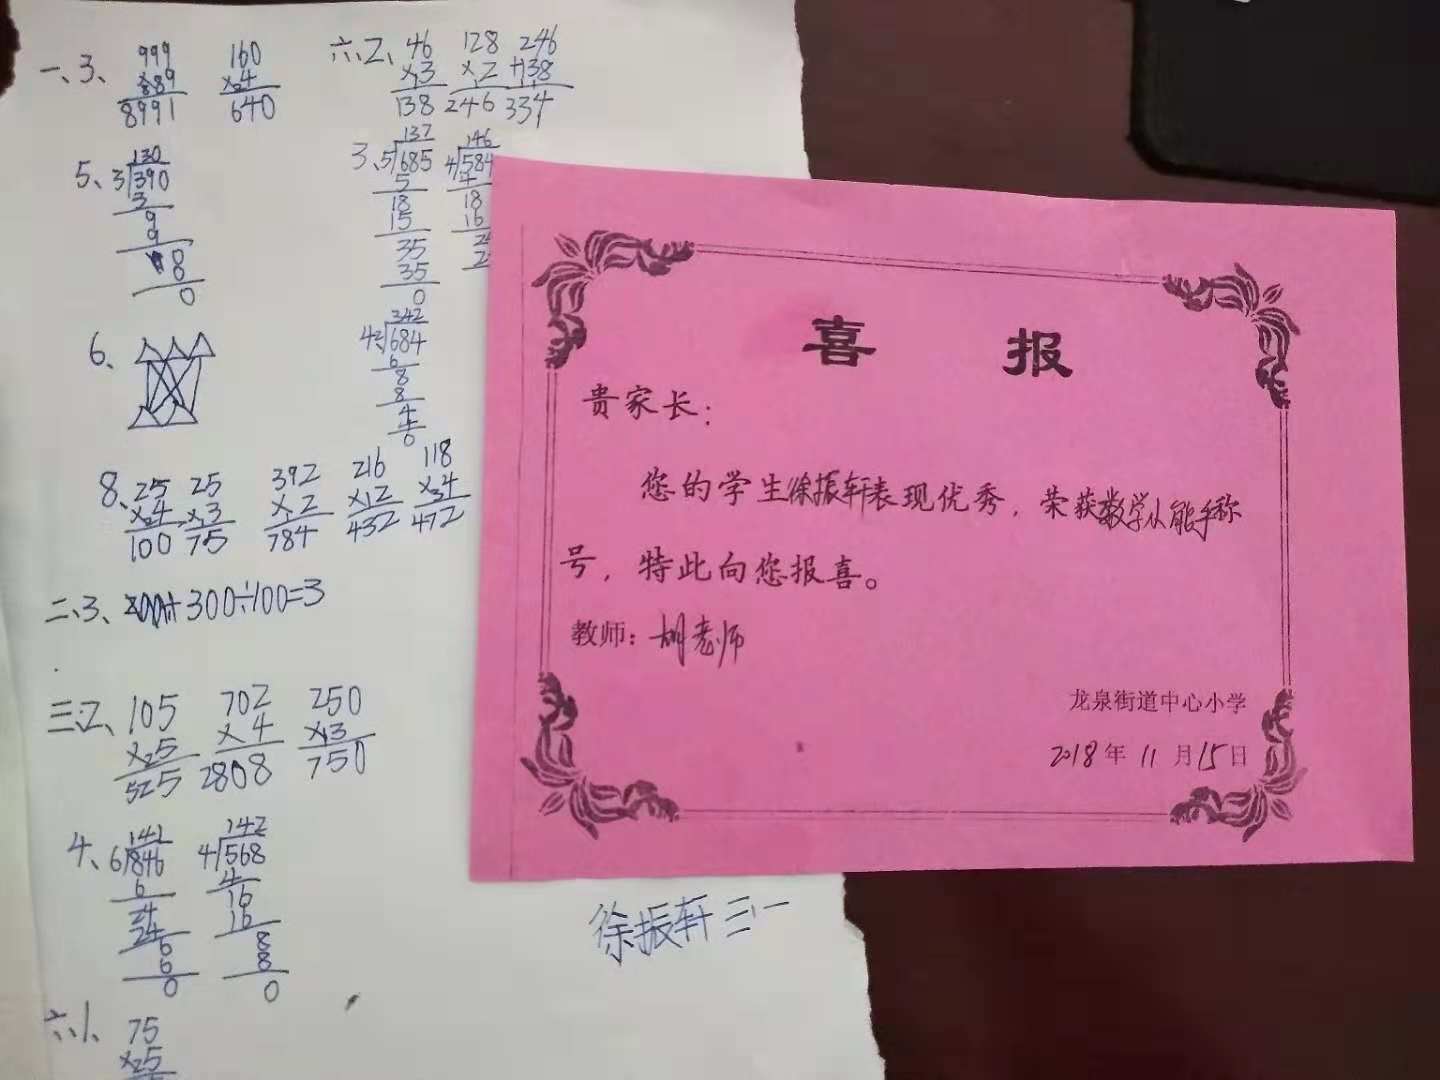 一、3、 999 160
×89 ×4
8991 640
5、 130
3 390
3
9
9
8
0
6、
8、 25 25 392 216 118
×4 ×3 ×2 ×2 ×4
100 75 784 432 472
二、3、 300÷100=3
三、2、 105 702 250
×5 ×4 ×3
525 2808 750
4、 141 142
6 846 4 568
6 4
24 16
24 16
6 8
6 8
0 0
六、1、 75
×5
六、2、 46 128 246
×3 ×2 +138
138 246 334
3、 137 146
5 685 4 584
5 4
18 18
15 16
35
35
0
342
2 684
6
8
8
4
0
喜 报
贵家长：
您的学生徐振轩表现优秀，荣获数学小能手称
号，特此向您报喜。
教师：胡老师
龙泉街道中心小学
2018年11月15日
徐振轩 三、一